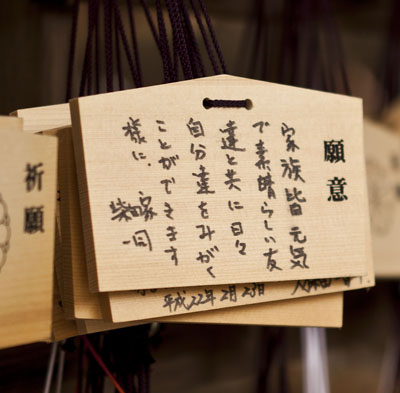 願意
家族皆元気
で素晴らしい友
達と共に日々
自分達をみがく
ことができます
様に。
柴田家
一同
平成22年2月23日
祈願